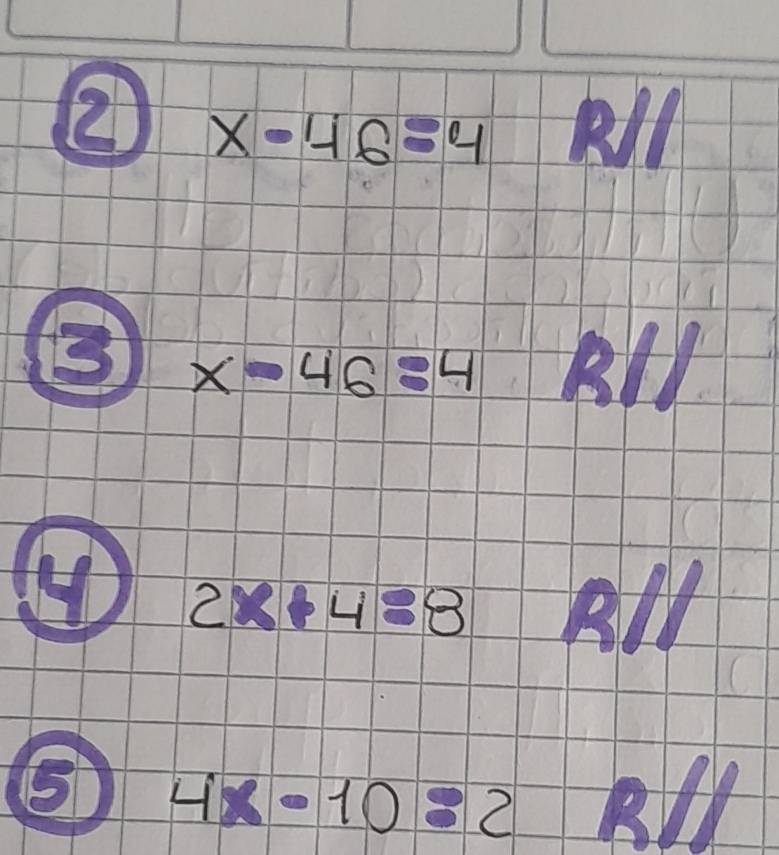 2 x - 46 = 4 R//
3 x - 46 = 4 R//
4 2x + 4 = 8 R//
5 4x - 10 = 2 R//